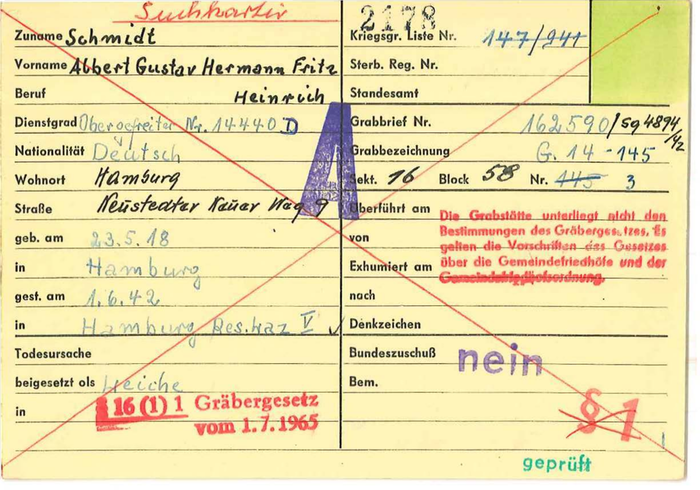 Suchkartei
2178
Zuname Schmidt
Kriegsgr. Liste Nr. 147/941
Vorname Albert Gustav Hermann Fritz
Sterb. Reg. Nr.
Beruf Heinrich
Standesamt
Dienstgrad Obergefreiter Nr. 14440 D
Grabbrief Nr. 162590/Sg4894/42
A
Nationalität Deutsch
Grabbezeichnung G. 14 - 145
Wohnort Hamburg
Sekt. 16 Block 58 Nr. 145 3
Straße Neustedter Neuer Weg 9
Überführt am
von
Die Grabstätte unterliegt nicht den
Bestimmungen des Gräbergesetzes. Es
gelten die Vorschriften des Gesetzes
über die Gemeindefriedhöfe und der
Gemeindefriedhofsordnung.
geb. am 23.5.18
in Hamburg
Exhumiert am
gest. am 1.6.42
nach
in Hamburg Res. Laz V
Denkzeichen
Todesursache
Bundeszuschuß nein
beigesetzt als Leiche
Bem.
in
§ 16 (1) 1 Gräbergesetz
vom 1.7.1965
§ 1
geprüft